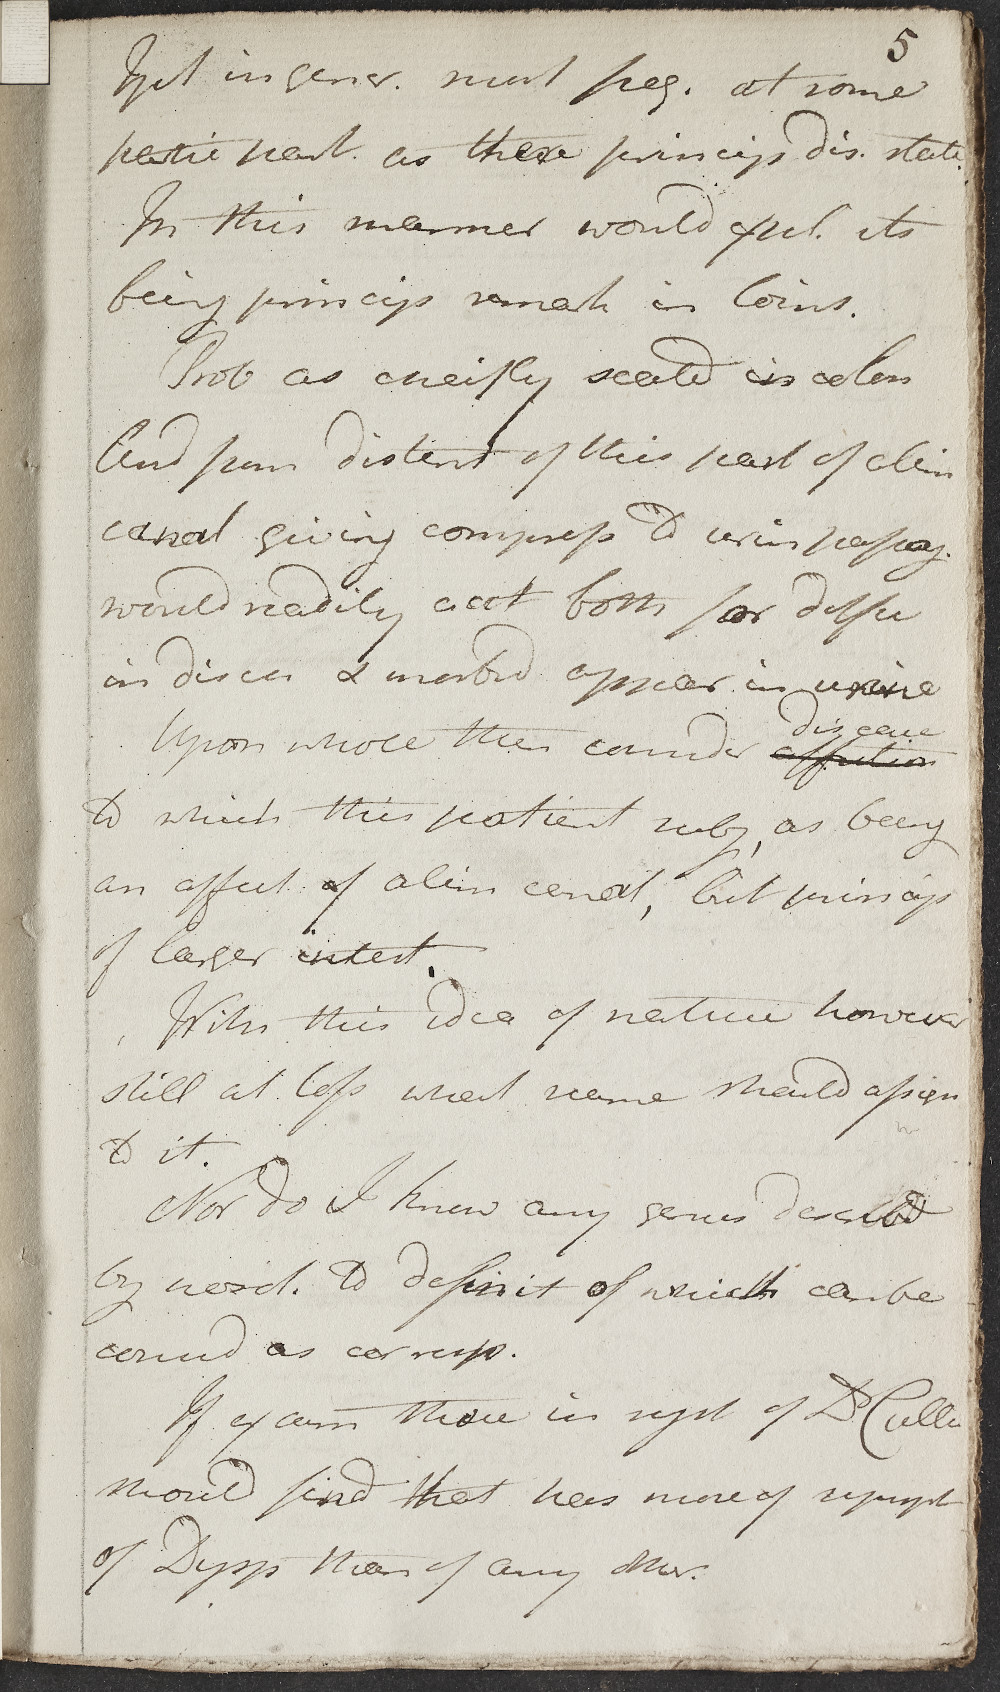 5
Yet in gener. must freq. at some
partic part. as there princip dis. state.
In this manner would expl. its
being princip remark in loins.
Prob as cheifly seated in colon
And from distent of this part of alim
canal giving compress to urin passag.
would readily acct both for diffic
in discer & morbid appear. in urine
Upon whole then consider disease
affection
to which this patient subj, as being
an affect. of alim canal, but princip
of larger intest.
With this idea of nature however
still at loss what name should assign
to it.
Nor do I know any genus describd
by nosol. to definit of which can be
consid as corresp.
If exam those in syst of Dr Cullen
should find that has more of sympt
of Dysp than of any other.